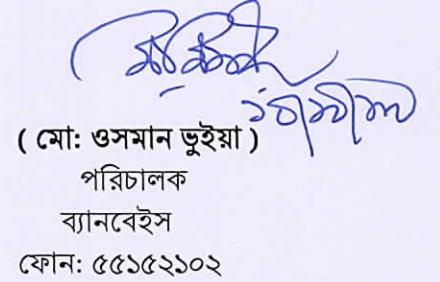 ( মো: ওসমান ভুইয়া )
পরিচালক
ব্যানবেইস
ফোন: ৫৫১৫২১০২